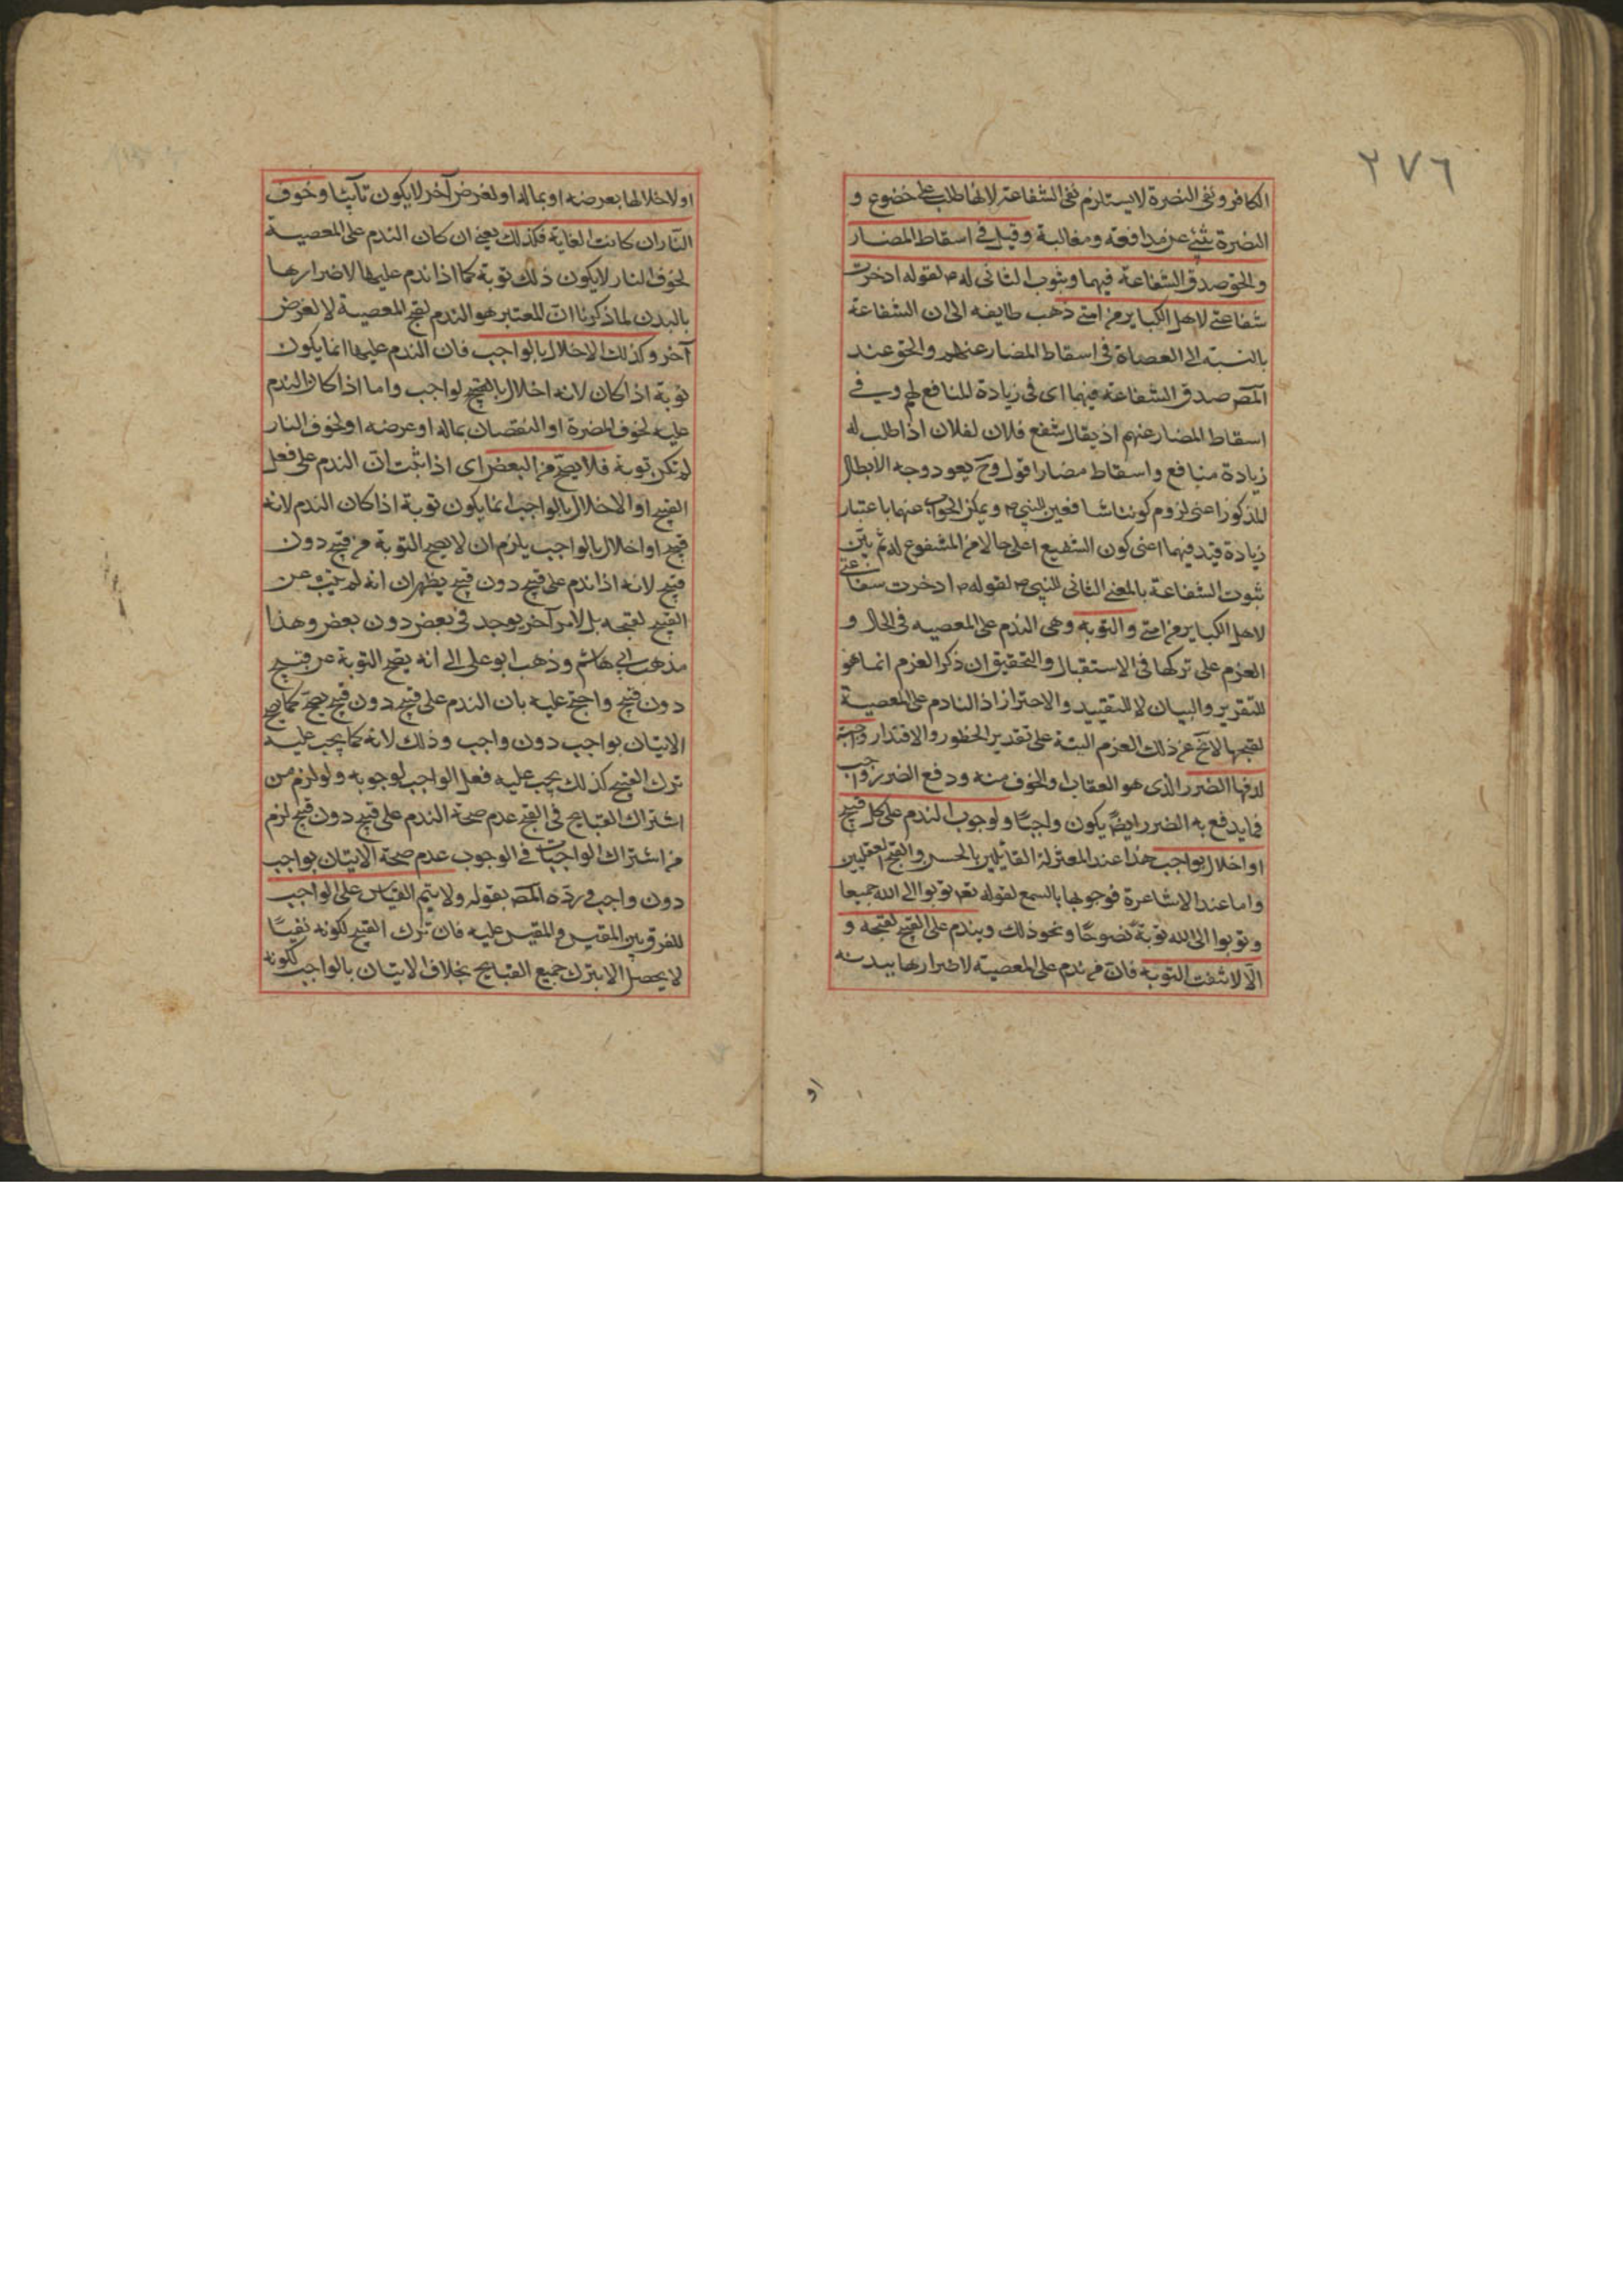 ٢٧٦
الكافر ونفى النصرة لا يستلزم نفى الشفاعة لانها طلب على خضوع و
النصرة تنبئ عن مدافعة ومغالبة وقيل فى اسقاط المضار
والحق صدق الشفاعة فيهما وثبوت الثانى له ص لقوله ادخرت
شفاعتى لاهل الكباير من امتى ذهب طايفه الى ان الشفاعة
بالنسبة الى العصاة فى اسقاط المضار عنهم والحق عند
المص صدق الشفاعة فيهما اى فى زيادة المنافع لهم وفى
اسقاط المضار عنهم اذ يقال شفع فلان لفلان اذا طلب له
زيادة منافع واسقاط مضار اقول وح يعود وجه الابطال
المذكور اعنى لزوم كوننا شافعين للنبى ص ويمكن الجواب عنهما باعتبار
زيادة قيد فيهما اعنى كون الشفيع اعلى حالا من المشفوع له ثم بين
ثبوت الشفاعة بالمعنى الثانى للنبى ص لقوله ص ادخرت شفاعتى
لاهل الكباير من امتى والتوبه وهى الندم على المعصيه فى الحال و
العزم على تركها فى الاستقبال والتحقيق ان ذكر العزم انما هو
للتقرير والبيان لا للتقييد والاحتراز اذ النادم على المعصية
لقبحها لا يخ عن ذلك العزم البتة على تقدير الخطور والاقتدار واجبة
لدفعها الضرر الذى هو العقاب او الخوف منه ودفع الضرر واجب
فما يدفع به الضرر ايضً يكون واجبًا ولوجوب الندم على كل قبيح
او اخلال بواجب هذا عند المعتزلة القائلين بالحسن والقبح العقليين
واما عند الاشاعرة فوجوبها بالسمع لقوله تعم توبوا الى الله جميعا
وتوبوا الى الله توبة نصوحًا ونحو ذلك ويندم على القبيح لقبحه و
الّا لانتفت التوبه فان من ندم على المعصية لاضرارها ببدنه
او
او لاخلالها بعرضه او بماله او لغرض آخر لا يكون تآئبًا وخوف
النار ان كانت الغاية فكذلك يعنى ان كان الندم على المعصية
لخوف النار لا يكون ذلك توبة كما اذا ندم عليها لاضرارها
بالبدن لما ذكرنا ان المعتبر هو الندم لقبح المعصية لا لغرض
آخر وكذلك الاخلال بالواجب فان الندم عليها انما يكون
توبة اذا كان لانه اخلال بالقبيح لواجب واما اذا كان الندم
عليه لخوف المضرة او النقصان بماله او عرضه او لخوف النار
لم تكن توبة فلا يصح من البعض اى اذا ثبت ان الندم على فعل
القبيح او الاخلال بالواجب انما يكون توبة اذا كان الندم لانه
قبيح او اخلال بالواجب يلزم ان لا يصح التوبة من قبيح دون
قبيح لانه اذا ندم على قبيح دون قبيح يظهر ان انه لم يتب عن
القبيح لقبحه بل لامر آخر يوجد فى بعض دون بعض وهذا
مذهب ابى هاشم وذهب ابو على الى انه يصح التوبة عن قبيح
دون قبيح واحتج عليه بان الندم على قبيح دون قبيح يصح كما يصح
الاتيان بواجب دون واجب وذلك لانه كما يجب عليه
ترك القبيح كذلك يجب عليه فعل الواجب لوجوبه ولو لزم من
اشتراك القبايح فى القبح عدم صحة الندم على قبيح دون قبيح لزم
من اشتراك الواجبات فى الوجوب عدم صحة الاتيان بواجب
دون واجب فردّه المص بقوله ولا يتم القياس على الواجب
للفرق بين المقيس والمقيس عليه فان ترك القبيح لكونه نفيًا
لا يحصل الا بترك جميع القبايح بخلاف الاتيان بالواجب لكونه